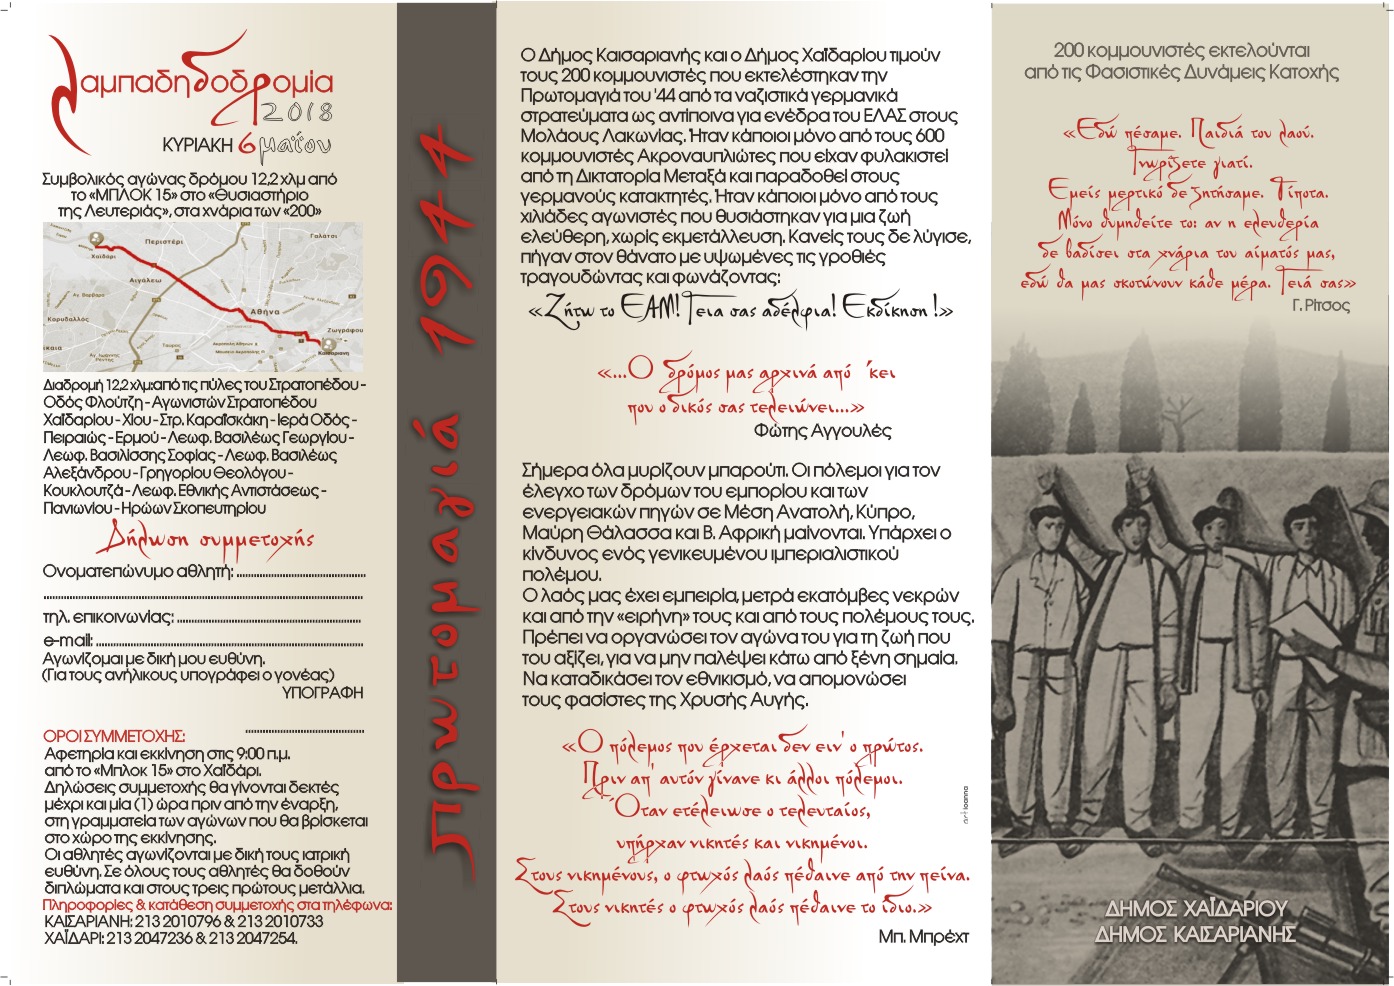 λαμπαδηδοδρομία
2018
ΚΥΡΙΑΚΗ 6 μαΐου
Συμβολικός αγώνας δρόμου 12,2 χλμ από
το «ΜΠΛΟΚ 15» στο «Θυσιαστήριο
της Λευτεριάς», στα χνάρια των «200»
Περιστέρι
Γαλάτσι
Χαϊδάρι
Αιγάλεω
Αγ. Βαρβάρα
Αθήνα
Κορυδαλλός
Ζωγράφου
Καισαριανη
Ταύρος
Διαδρομή 12,2 χλμ:από τις πύλες του Στρατοπέδου -
Οδός Φλούτζη - Αγωνιστών Στρατοπέδου
Χαϊδαρίου - Χίου - Στρ. Καραΐσκάκη - Ιερά Οδός -
Πειραιώς - Ερμού - Λεωφ. Βασιλέως Γεωργίου -
Λεωφ. Βασιλίσσης Σοφίας - Λεωφ. Βασιλέως
Αλεξάνδρου - Γρηγορίου Θεολόγου -
Κουκλουτζά - Λεωφ. Εθνικής Αντιστάσεως -
Πανιωνίου - Ηρώων Σκοπευτηρίου
Δήλωση συμμετοχής
Ονοματεπώνυμο αθλητή: ................................
................................
τηλ. επικοινωνίας: ................................
e-mail: ................................
Αγωνίζομαι με δική μου ευθύνη.
(Για τους ανήλικους υπογράφει ο γονέας)
ΥΠΟΓΡΑΦΗ
................................
ΟΡΟΙ ΣΥΜΜΕΤΟΧΗΣ:
Αφετηρία και εκκίνηση στις 9:00 π.μ.
από το «Μπλοκ 15» στο Χαϊδάρι.
Δηλώσεις συμμετοχής θα γίνονται δεκτές
μέχρι και μία (1) ώρα πριν από την έναρξη,
στη γραμματεία των αγώνων που θα βρίσκεται
στο χώρο της εκκίνησης.
Οι αθλητές αγωνίζονται με δική τους ιατρική
ευθύνη. Σε όλους τους αθλητές θα δοθούν
διπλώματα και στους τρεις πρώτους μετάλλια.
Πληροφορίες & κατάθεση συμμετοχής στα τηλέφωνα:
ΚΑΙΣΑΡΙΑΝΗ: 213 2010796 & 213 2010733
ΧΑΪΔΑΡΙ: 213 2047236 & 213 2047254.
πρωτομαγιά 1944
Ο Δήμος Καισαριανής και ο Δήμος Χαϊδαρίου τιμούν
τους 200 κομμουνιστές που εκτελέστηκαν την
Πρωτομαγιά του '44 από τα ναζιστικά γερμανικά
στρατεύματα ως αντίποινα για ενέδρα του ΕΛΑΣ στους
Μολάους Λακωνίας. Ήταν κάποιοι μόνο από τους 600
κομμουνιστές Ακροναυπλιώτες που είχαν φυλακιστεί
από τη Δικτατορία Μεταξά και παραδοθεί στους
γερμανούς κατακτητές. Ήταν κάποιοι μόνο από τους
χιλιάδες αγωνιστές που θυσιάστηκαν για μια ζωή
ελεύθερη, χωρίς εκμετάλλευση. Κανείς τους δε λύγισε,
πήγαν στον θάνατο με υψωμένες τις γροθιές
τραγουδώντας και φωνάζοντας:
«Ζήτω το ΕΑΜ! Γεια σας αδέλφια! Εκδίκηση !»
«...Ο δρόμος μας αρχινά από 'κει
που ο δικός σας τελειώνει...»
Φώτης Αγγουλές
Σήμερα όλα μυρίζουν μπαρούτι. Οι πόλεμοι για τον
έλεγχο των δρόμων του εμπορίου και των
ενεργειακών πηγών σε Μέση Ανατολή, Κύπρο,
Μαύρη Θάλασσα και Β. Αφρική μαίνονται. Υπάρχει ο
κίνδυνος ενός γενικευμένου ιμπεριαλιστικού
πολέμου.
Ο λαός μας έχει εμπειρία, μετρά εκατόμβες νεκρών
και από την «ειρήνη» τους και από τους πολέμους τους.
Πρέπει να οργανώσει τον αγώνα του για τη ζωή που
του αξίζει, για να μην παλέψει κάτω από ξένη σημαία.
Να καταδικάσει τον εθνικισμό, να απομονώσει
τους φασίστες της Χρυσής Αυγής.
«Ο πόλεμος που έρχεται δεν ειν' ο πρώτος.
Πριν απ' αυτόν γίνανε κι άλλοι πόλεμοι.
Όταν ετέλειωσε ο τελευταίος,
υπήρχαν νικητές και νικημένοι.
Στους νικημένους, ο φτωχός λαός πέθαινε από την πείνα.
Στους νικητές ο φτωχός λαός πέθαινε το ίδιο.»
Μπ. Μπρέχτ
art ioanna
200 κομμουνιστές εκτελούνται
από τις Φασιστικές Δυνάμεις Κατοχής
«Εδώ πέσαμε. Παιδιά του λαού.
Γνωρίζετε γιατί.
Εμείς μερτικό δε ζητήσαμε. Τίποτα.
Μόνο θυμηθείτε το: αν η ελευθερία
δε βαδίσει στα χνάρια του αίματός μας,
εδώ θα μας σκοτώνουν κάθε μέρα. Γειά σας»
Γ. Ρίτσος
ΔΗΜΟΣ ΧΑΪΔΑΡΙΟΥ
ΔΗΜΟΣ ΚΑΙΣΑΡΙΑΝΗΣ